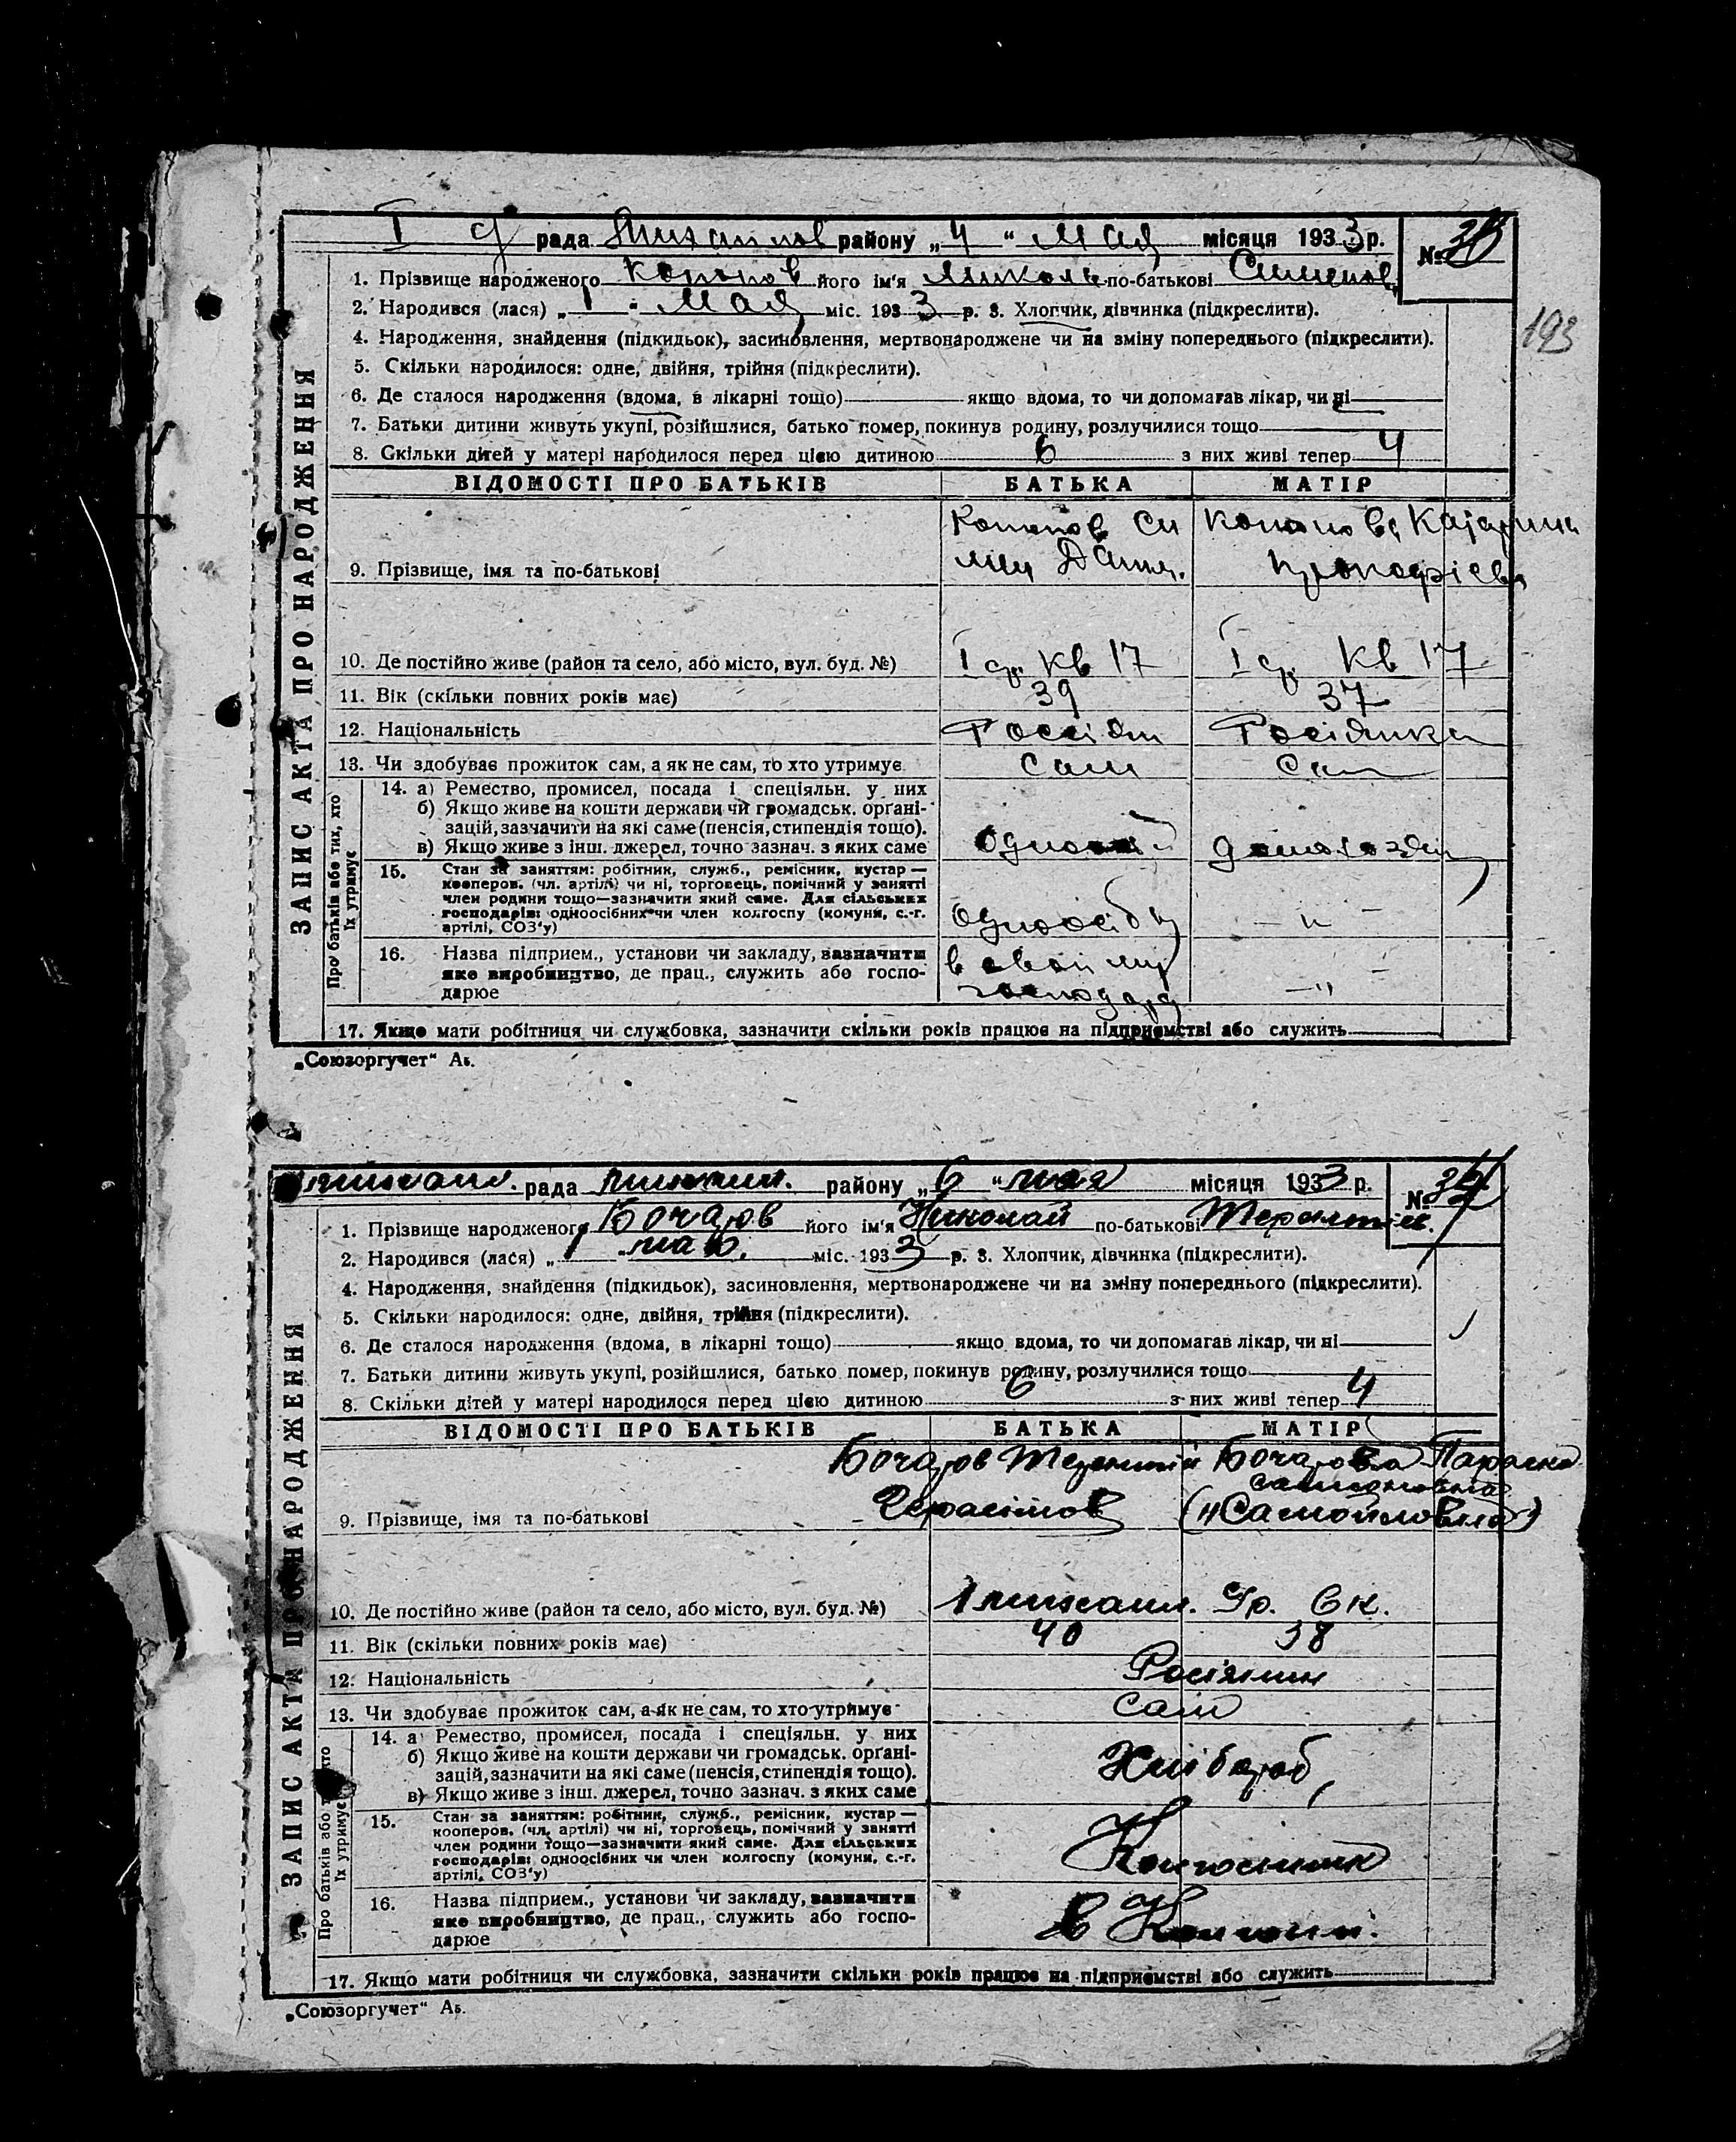 рада района „4“ Мая місяця 1933 р. №
1. Прізвище народженого Кононов його ім'я по-батькові
2. Народився (лася) „1“ Мая міс. 1933 р. 3. Хлопчик, дівчинка (підкреслити).
193
4. Народження, знайдення (підкидьок), засиновлення, мертвонароджене чи на зміну попереднього (підкреслити).
5. Скільки народилося: одне, двійня, трійня (підкреслити).
6. Де сталося народження (вдома, в лікарні тощо) якщо вдома, то чи допомагав лікар, чи ні
7. Батьки дитини живуть укупі, розійшлися, батько помер, покинув родину, розлучилися тощо
8. Скільки дітей у матері народилося перед цією дитиною 6 з них живі тепер 4
ЗАПИС АКТА ПРО НАРОДЖЕННЯ
ВІДОМОСТІ ПРО БАТЬКІВ БАТЬКА МАТІР
Кононов Си Кононова Катарина
9. Прізвище, імя та по-батькові
10. Де постійно живе (район та село, або місто, вул. буд. №) І Кв 17 І Кв 17
11. Вік (скільки повних років має) 39 37
12. Національність Россіян Росіянка
13. Чи здобуває прожиток сам, а як не сам, то хто утримує Сам Сам
Про батьків або тих, хто їх утримує
14. а) Ремество, промисел, посада і спеціяльн. у них
б) Якщо живе на кошти держави чи громадськ. орґані-
зацій, зазначити на які саме (пенсія, стипендія тощо).
в) Якщо живе з інш. джерел, точно зазнач. з яких саме
15. Стан за заняттям: робітник, служб., ремісник, кустар —
кооперов. (чл. артілі) чи ні, торговець, помічний у занятті
член родини тощо—зазначити який саме. Для сільських
господарів: одноосібних чи член колгоспу (комуни, с.-г.
артілі, СОЗ'у) Одноосібн — " —
16. Назва підприєм., установи чи закладу, вазначити
яке виробництво, де прац., служить або госпо-
дарює — "
17. Якщо мати робітниця чи службовка, зазначити скільки років працює на підприємстві або служить
„Союзоргучет“ Аб.
рада району „6“ мая місяця 1933 р. №
1. Прізвище народженого Бочаров його ім'я Николай по-батькові
2. Народився (лася) „1“ маю. міс. 1933 р. 3. Хлопчик, дівчинка (підкреслити).
4. Народження, знайдення (підкидьок), засиновлення, мертвонароджене чи на зміну попереднього (підкреслити).
5. Скільки народилося: одне, двійня, трійня (підкреслити).
6. Де сталося народження (вдома, в лікарні тощо) якщо вдома, то чи допомагав лікар, чи ні
7. Батьки дитини живуть укупі, розійшлися, батько помер, покинув родину, розлучилися тощо
8. Скільки дітей у матері народилося перед цією дитиною 6 з них живі тепер 4
ЗАПИС АКТА ПРО НАРОДЖЕННЯ
ВІДОМОСТІ ПРО БАТЬКІВ БАТЬКА МАТІР
Бочаров Бочарова Параска
9. Прізвище, імя та по-батькові Герасімов (Самойловна)
10. Де постійно живе (район та село, або місто, вул. буд. №) Гр. 6 к.
11. Вік (скільки повних років має) 40 38
12. Національність Росіянин
13. Чи здобуває прожиток сам, а як не сам, то хто утримує Сам
Про батьків або їх утримує
14. а Ремество, промисел, посада і спеціяльн. у них
б) Якщо живе на кошти держави чи громадськ. орґані-
зацій, зазначити на які саме (пенсія, стипендія тощо).
в) Якщо живе з інш. джерел, точно зазнач. з яких саме
Хлібороб
15. Стан за заняттям: робітник, служб., ремісник, кустар —
кооперов. (чл. артілі) чи ні, торговець, помічний у занятті
член родини тощо—зазначити який саме. Для сільських
господарів: одноосібних чи член колгоспу (комуни, с.-г.
артілі, СОЗ'у) Колгоспник
16. Назва підприєм., установи чи закладу, вазначити
яке виробництво, де прац., служить або госпо-
дарює в
17. Якщо мати робітниця чи службовка, зазначити скільки років працює на підприємстві або служить
„Союзоргучет“ Аб.